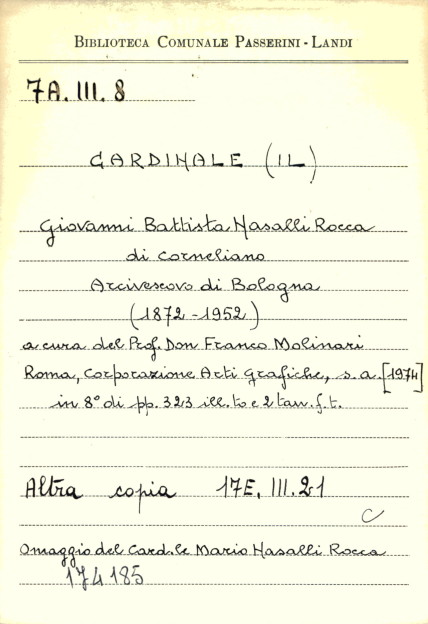 BIBLIOTECA COMUNALE PASSERINI-LANDI
7A. III. 8
CARDINALE (IL)
Giovanni Battista Nasalli Rocca
di Corneliano
Arcivescovo di Bologna
(1872-1952)
a cura del Prof. Don Franco Molinari
Roma, Corporazione Arti Grafiche, s.a. [1974]
in 8° di pp. 323 ill.to e 2 tav. f.t.
Altra copia 17E. III. 21
C
Omaggio del Card.le Mario Nasalli Rocca
174185